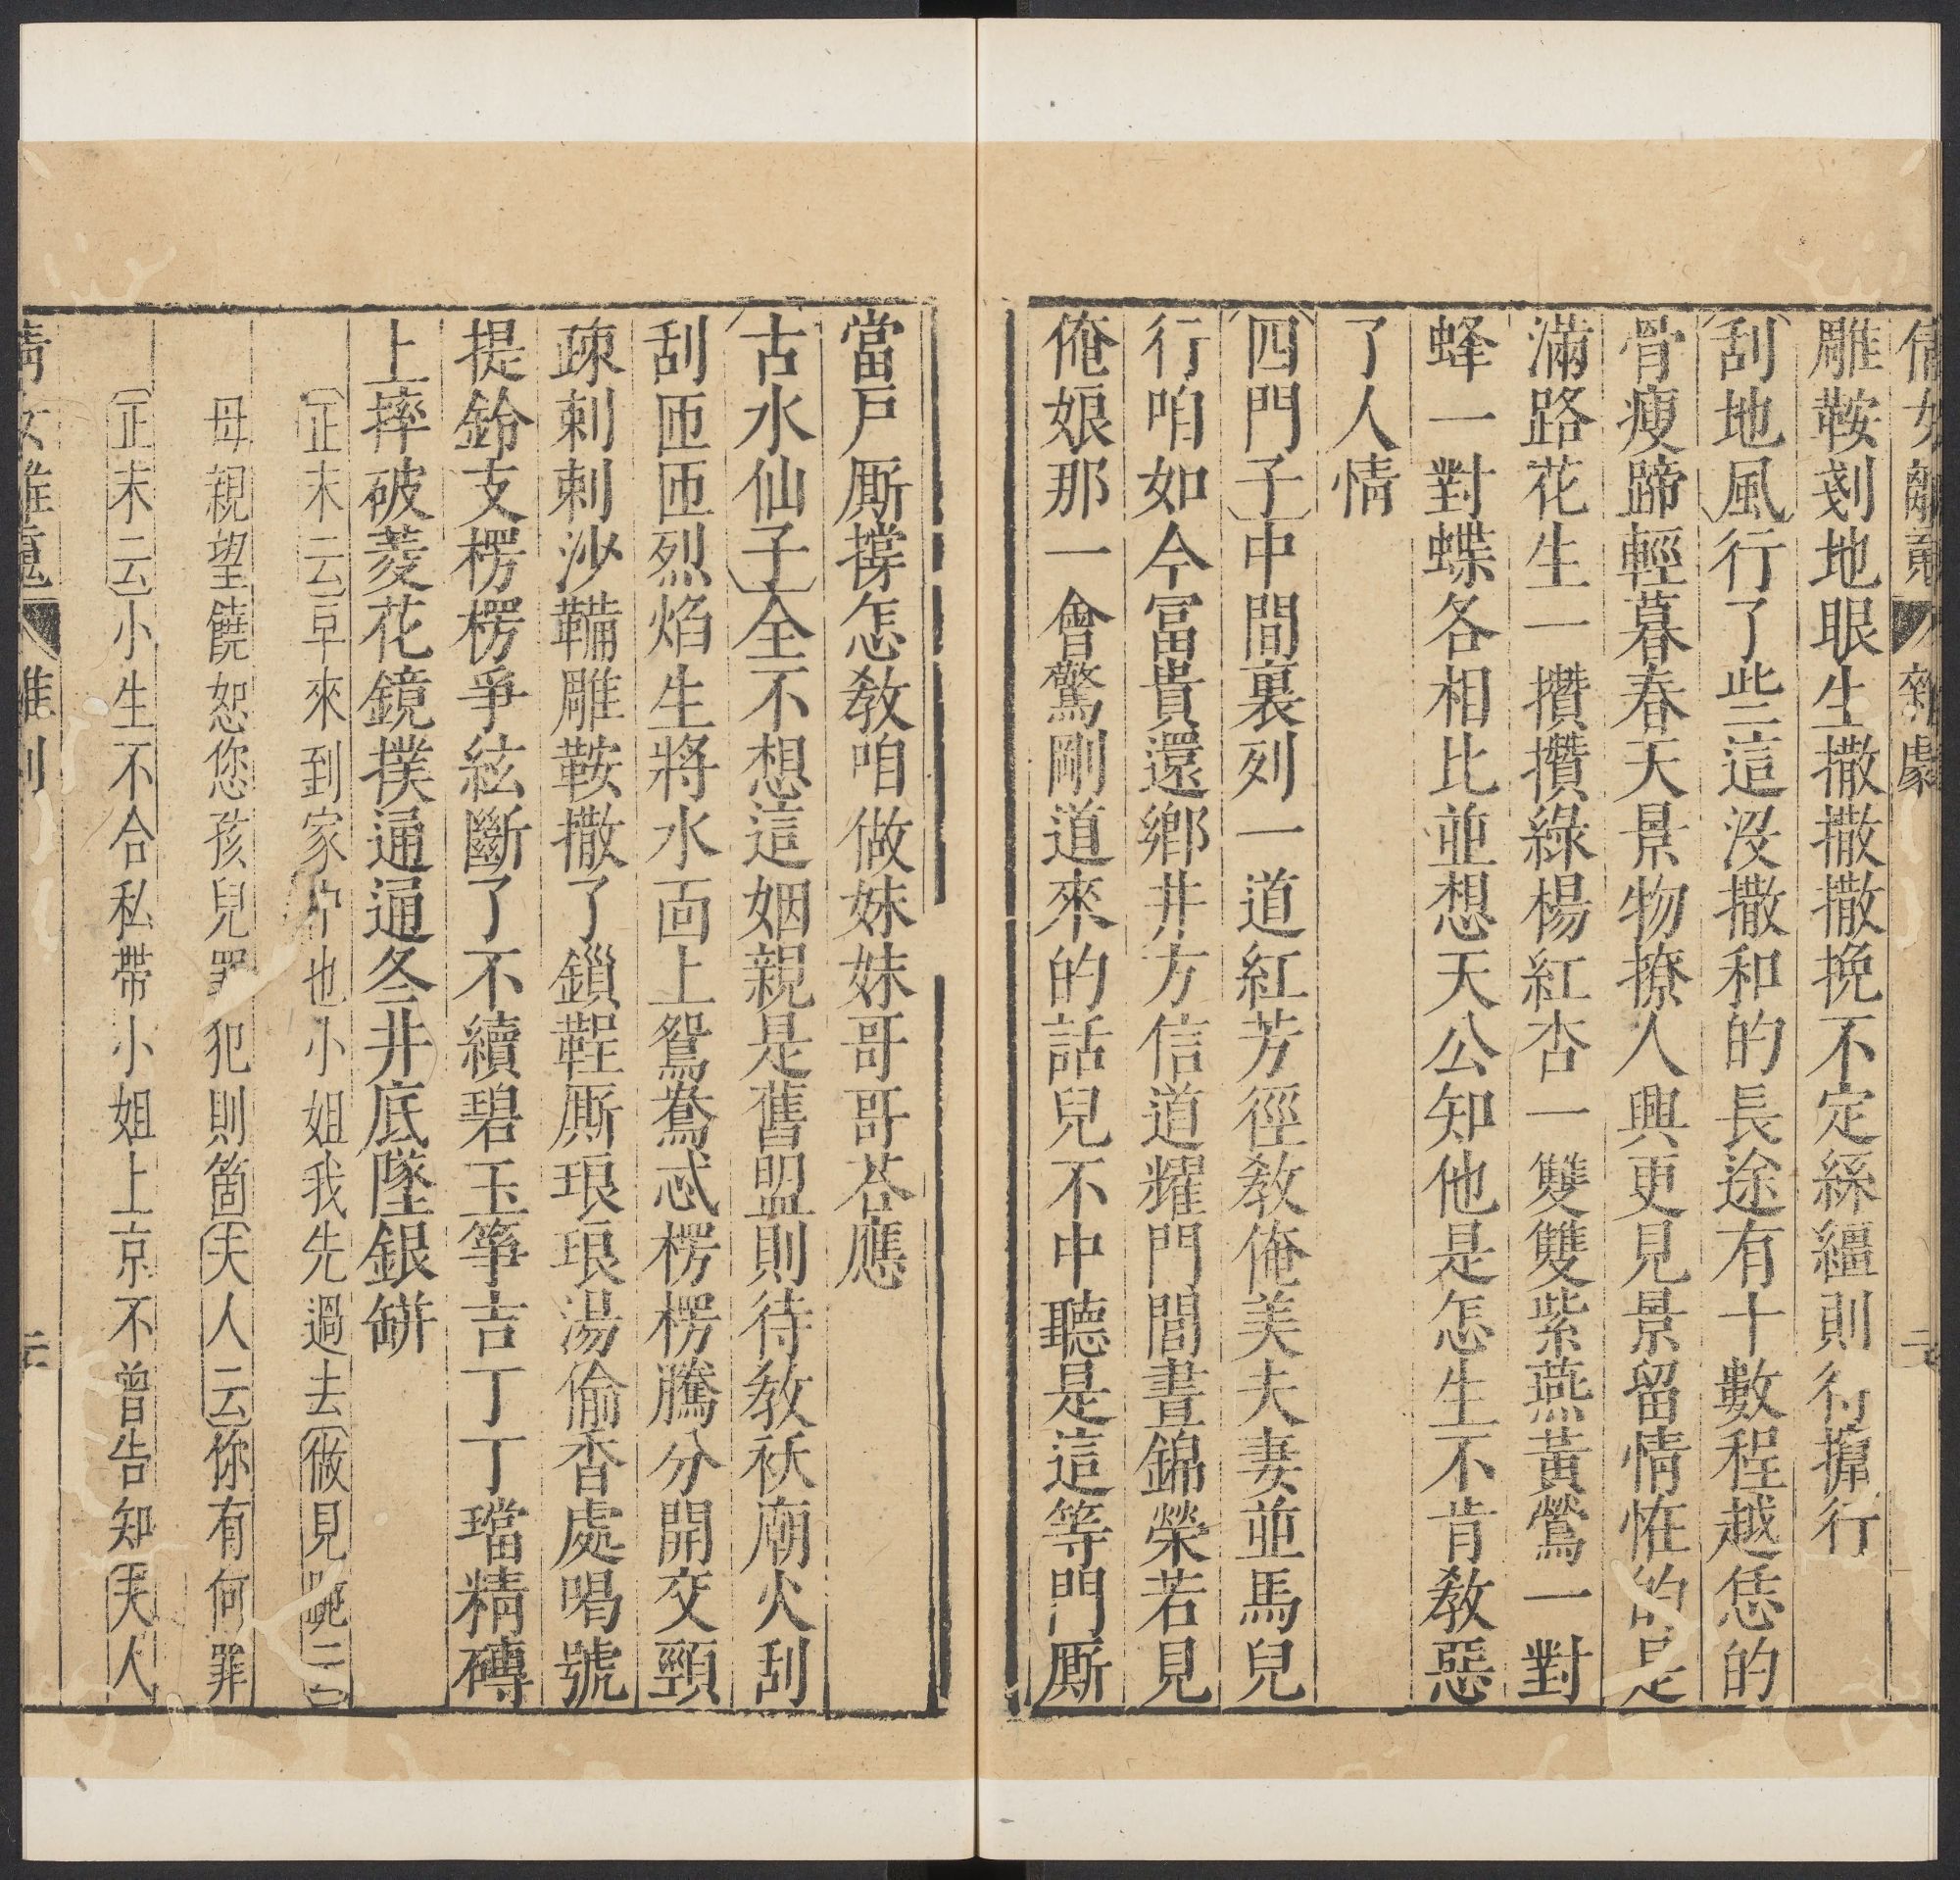 倩女離魂 雜劇
雕鞍剗地眼生撒撒撒挽不定絲繮則行攛行
刮地風行了些這沒撒和的長途有十數程越恁的
骨瘦蹄輕暮春天景物撩人興更見景留情恠的是
滿路花生一攢攢綠楊紅杏一雙雙紫燕黃鶯一對
蜂一對蝶各相比並想天公知他是怎生不肯敎惡
了人情
四門子中間裏列一道紅芳徑敎俺美夫妻並馬兒
行咱如今冨貴還鄉井方信道耀門閭晝錦榮若見
俺娘那一會驚剛道來的話兒不中聽是這等門厮
當戸厮撐怎敎咱做妹妹哥哥荅應
古水仙子全不想這姻親是舊盟則待敎祅廟火刮
刮匝匝烈焰生將水面上鴛鴦忒楞楞騰分開交頸
疎剌剌沙鞴雕鞍撒了鎻鞓厮琅琅湯偷香處喝號
提鈴支楞楞爭絃斷了不續碧玉箏吉丁丁璫精磚
上摔破菱花鏡撲通通冬井底墜銀缾
正末云早來到家中也小姐我先過去做見跪云
母親望饒恕您孩兒罪犯則箇夫人云你有何罪
正末云小生不合私帶小姐上京不曾告知夫人
倩女離魂 雜劇